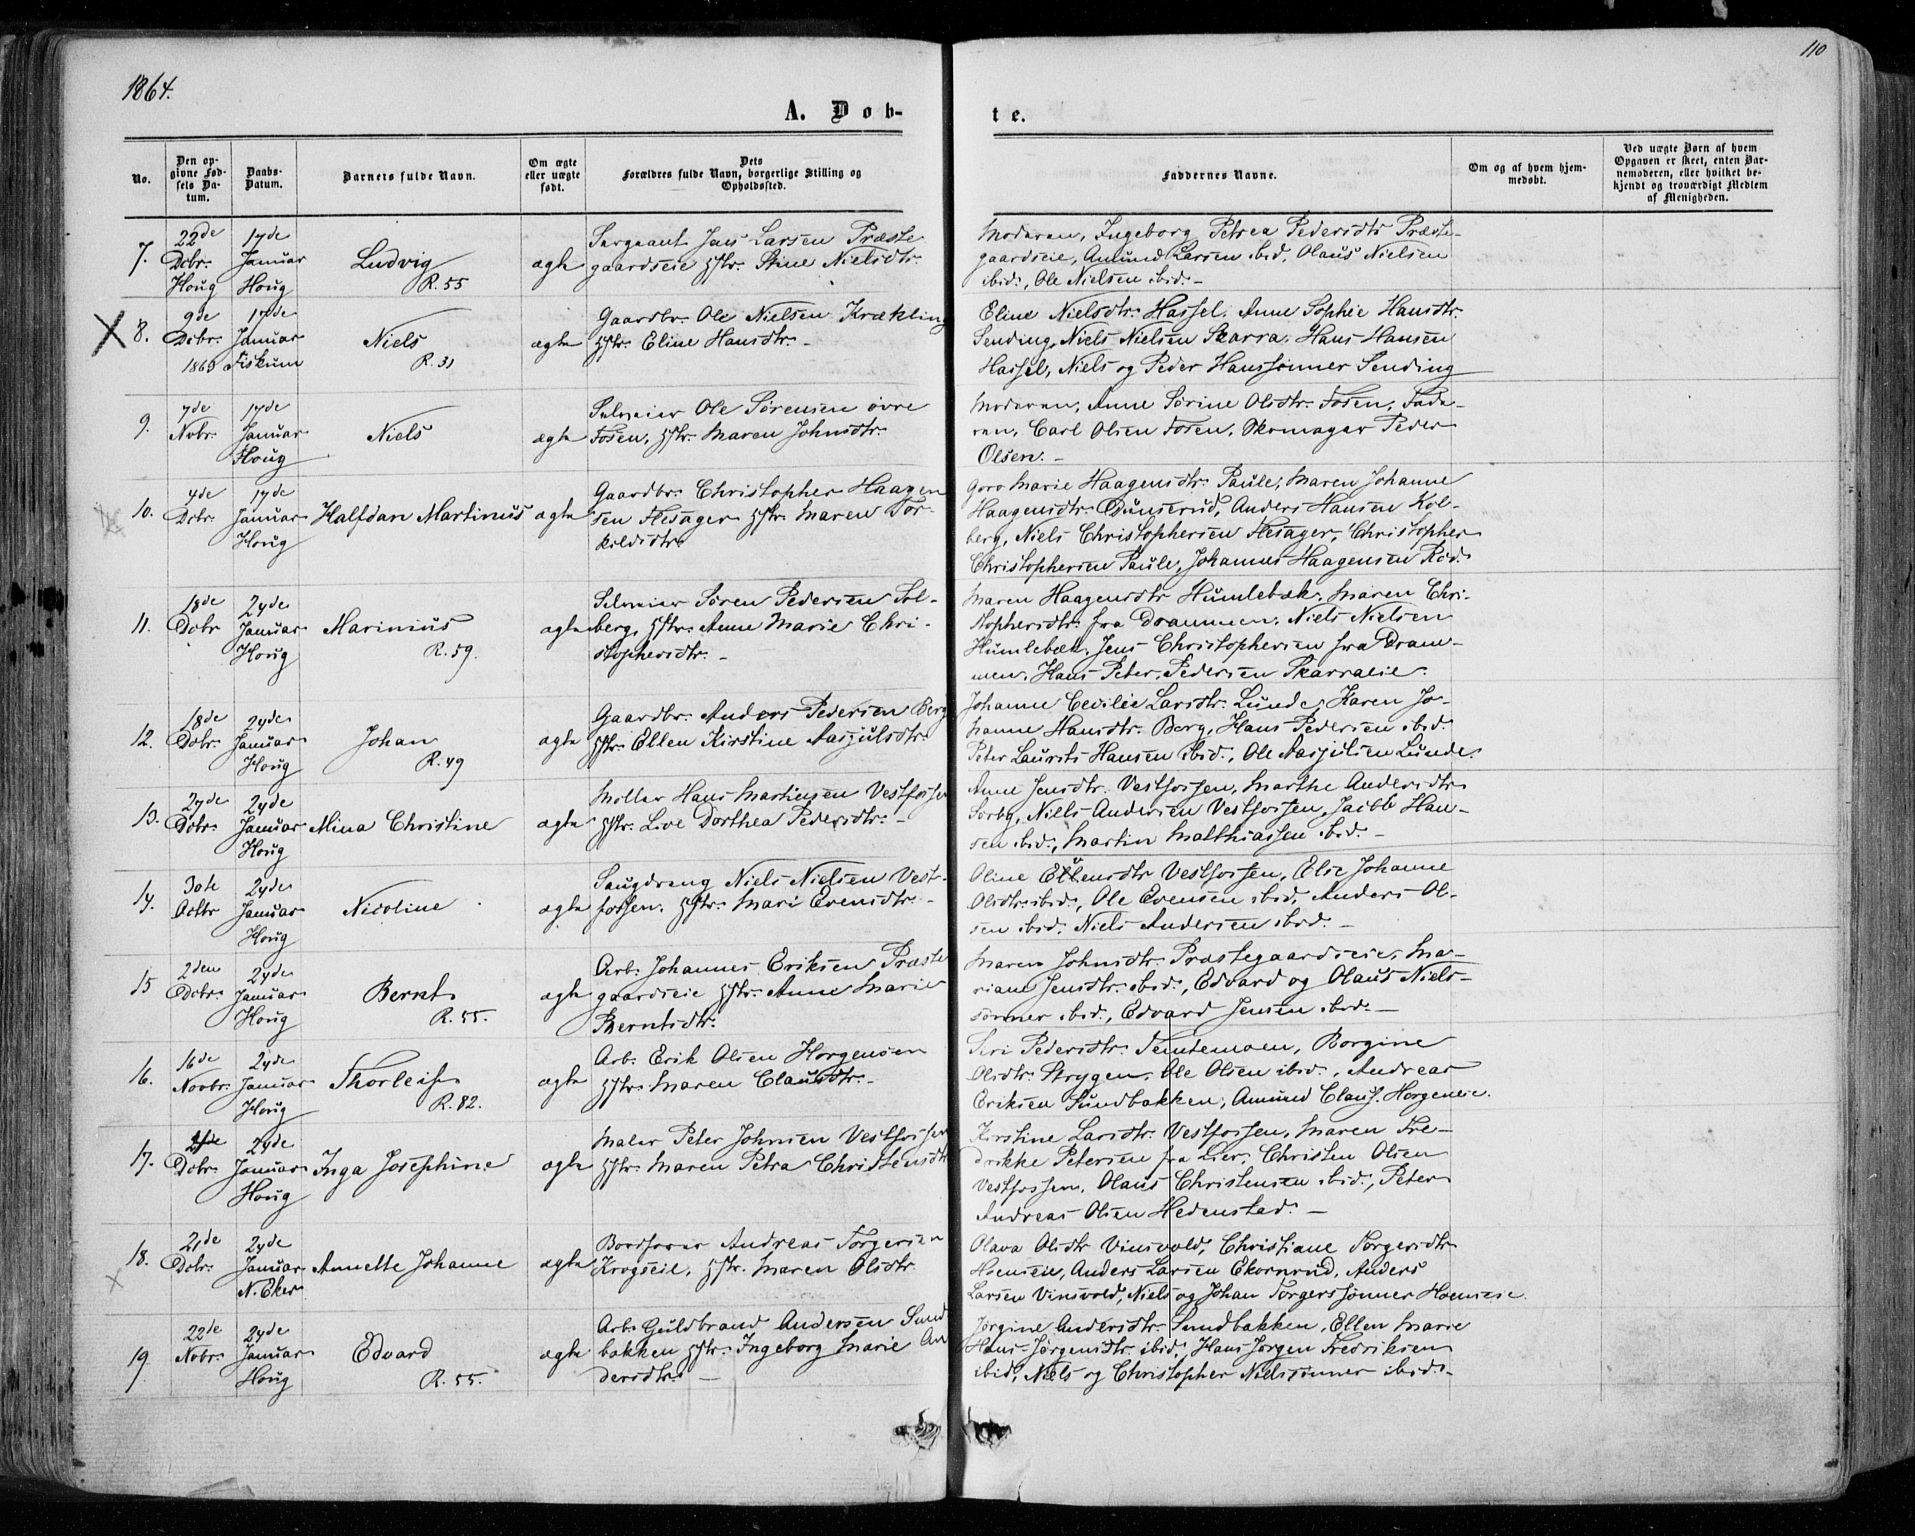 1864.
110
A. Døb-
te.
No.
Den op-
givne Fød-
sels Da-
tum.
Daabs-
Datum.
Barnets fulde Navn.
Om ægte
eller uægte
født.
Dets
Forældres fulde Navn, borgerlige Stilling og
Opholdssted.
Faddernes Navne.
Om og af hvem hjem-
medøbt.
Ved uægte Børn af hvem
Opgaven er skeet, enten Bar-
nemoderen, eller hvilket be-
kjendt og troværdigt Medlem
af Menigheden.
7.
22de
Dcbr.
Houg
17de
Januar
Houg
Ludvig
R. 55
ægte
Sergeant Jens Larsen Præste
gaardseie Hstr. Stine Nielsdtr.
Moderen, Ingeborg Petrea Pedersdtr Præste-
gaardseie, Amund Larsen ibid, Olaus Nielsen
ibid., Ole Nielsen ibid.-
X 8.
9de
Dcbr.
1863
17de
Januar
Fiskum
Niels
R. 31
ægte
Gaardbr. Ole Nielsen Krækling
Hstr. Eline Hansdtr. -
Eline Nielsdtr. Hassel. Anne Sophie Hansdtr.
Sending, Niels Nielsen Skarra, Hans Hansen
Hassel, Niels og Peder Hanssønner Sending
9.
7de
Nobr.
17de
Januar
Houg
Niels
ægte
Selveier Ole Sørensen øvre
Fosen, Hstr. Maren Johnsdtr.
Moderen, Anne Sørine Olsdtr. Fosen, Fade-
ren, Carl Olsen Fosen, Skomager Peder
Olsen. -
10.
4de
Dcbr.
17de
Januar
Houg
Halfdan Martinus
ægte
Gaardbr. Christopher Haagen
sen Flesager Hstr. Maren Tor-
kildsdtr.
Goro Marie Haagensdtr. Paule, Maren Johanne
Haagensdtr. Dunserud, Anders Hansen Kol-
berg, Niels Christophersen Flesager, Christopher
Christophersen Paule, Johannes Haagensen Rød.
11.
18de
Dcbr
24de
Januar
Houg
Marinius
R. 59.
ægte
Selveier Søren Pedersen Sol-
berg, Hstr. Anne Marie Chri-
stophersdtr. -
Maren Haagensdtr Humlebæk, Maren Chri-
stophersdtr. fra Drammen, Niels Nielsen
Humlebæk, Jens Christophersen fra Dram-
men, Hans Peter Pedersen Skarraeie.
12.
18de
Dcbr.
24de
Januar
Houg
Johan
R. 49
ægte
Gaardbr. Anders Pedersen Berg
Hstr. Ellen Kirstine Aasjulsdtr.
Johanne Cecilie Larsdtr. Lunde, Karen Jo-
hanne Hansdtr. Berg, Hans Pedersen ibid.
Peter Laurits Hansen ibid., Ole Aasjulsen Lunde.
13.
24de
Dcbr.
24de
Januar
Houg
Mina Christine
ægte
Møller Hans Martinsen Vestfossen
Hstr. Live Dorthea Pedersdtr. -
Anne Jensdtr. Vestfossen, Marthe Andersdtr
Sorby, Niels Andersen Vestfossen, Jacob Han-
sen ibid., Martin Matthiassen ibid. -
14.
30te
Octbr
24de
Januar
Houg
Nicoline
ægte
Saugdreng Niels Nielsen Vest-
fossen, Hstr. Mari Evensdtr. -
Oline Evensdtr Vestfossen, Elie Johanne
Olsdtr. ibid., Ole Evensen ibid, Anders Ol-
sen ibid. Niels Andersen ibid. -
15
2den
Dcbr.
24de
Januar
Houg
Bernt
R. 55.
ægte
Arb. Johannes Eriksen Præste
gaardseie Hstr. Anne Marie
Berntsdtr.
Maren Johnsdtr. Præstegaardseie, Ma-
riane Jensdtr. ibid., Edvard og Olaus Niels-
sønner ibid., Edvard Jensen ibid. -
16.
16de
Novbr.
24de
Januar
Houg
Thorleif
R. 82.
ægte
Arb. Erik Olsen Horgensen
Hstr. Maren Clausdtr. -
Siri Pedersdtr. Temtemoen, Borgine
Olsdtr. Strygen, Ole Olsen ibid., Andreas
Eriksen Sundbakken, Amund Claus. Horgeneie.
17.
Dcbr.
24de
Januar
Houg
Inga Josephine
ægte
Maler Peter Johnsen Vestfossen
Hstr. Maren Petra Christensdtr
Kirstine Larsdtr. Vestfossen, Maren Fre-
drikke Petersen fra Lier, Christen Olsen
Vestfossen, Olaus Christensen ibid., Peter
Andreas Olsen Hedenstad. -
18.
21de
Dcbr.
24de
Januar
N. Eker
Annette Johanne
ægte
Bordskjærer Andreas Torgersen
Krogseie, Hstr. Maren Olsdtr
Olava Olsdtr Vinsvold, Christiane Torgersdtr
Hoenseie, Anders Larsen Ekornrud, Anders
Larsen Vinsvold, Niels og Johan Torgerssønner Hoenseie.
19.
22de
Nobr.
24de
Januar
Houg
Edvard
R. 55.
ægte
Arb. Guldbrand Andersen Sund
bakken Hstr. Ingeborg Marie An
dersdtr. -
Jørgine Andersdtr. Sundbakken, Ellen Marie
Hans-Jørgensdtr. ibid, Hans Jørgen Fredriksen
ibid, Niels og Christopher Nielssønner ibid.